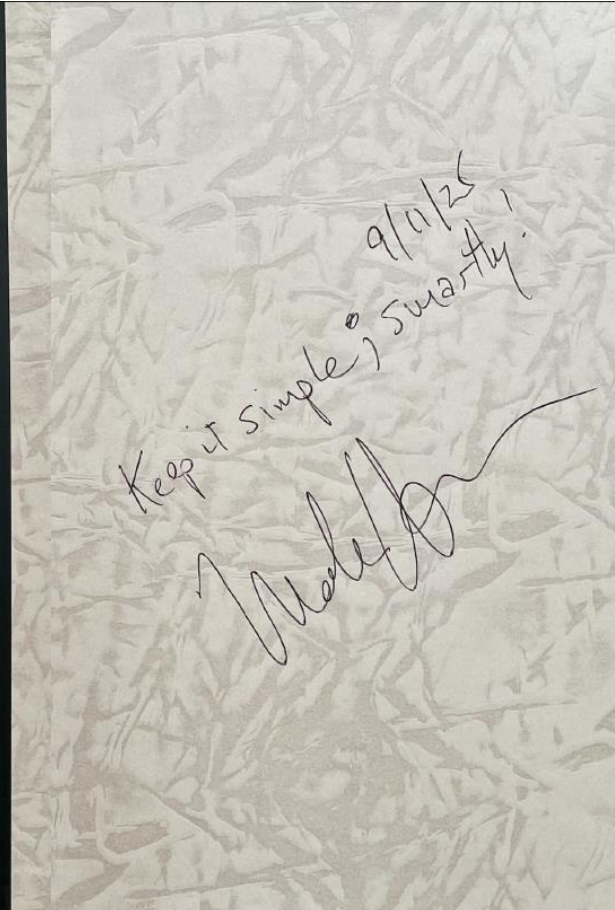 9/11/25
Keep it simple; smartly!